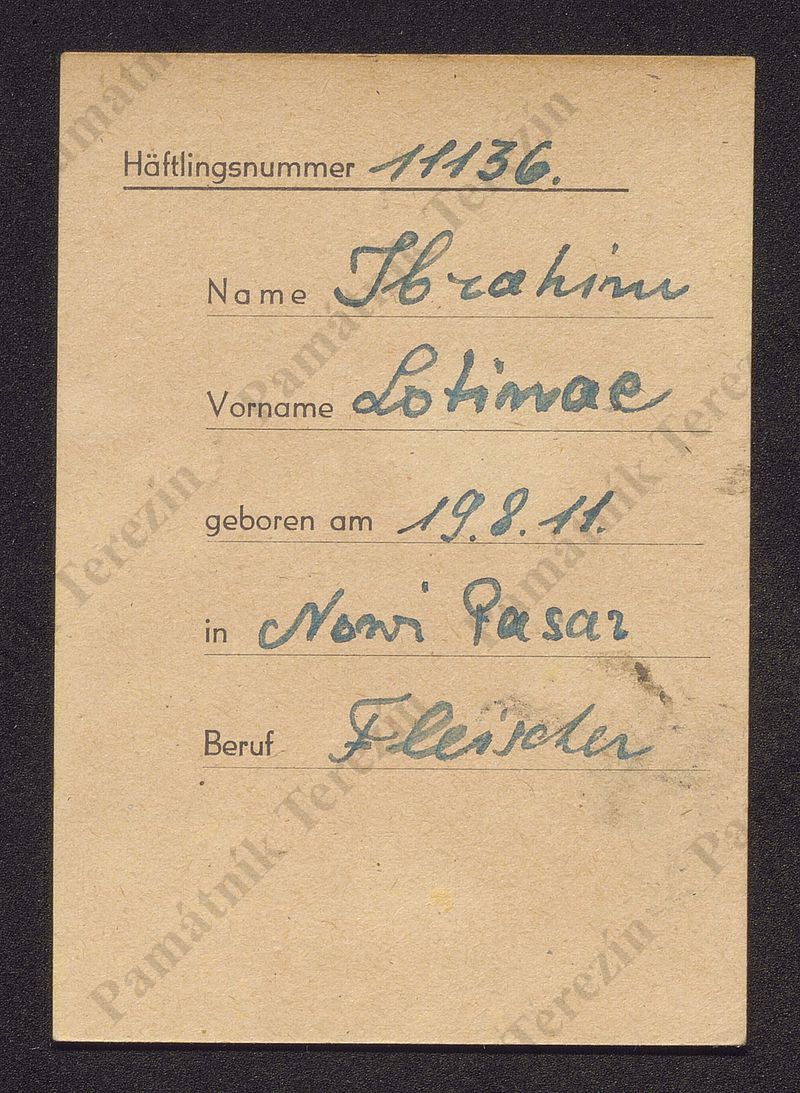 Häftlingsnummer 11136.
Name Ibrahim
Vorname Lotinac
geboren am 19.8.11.
in Nowi Pasar
Beruf Fleischer
Památník Terezín
Památník Terezín
Památník Terezín